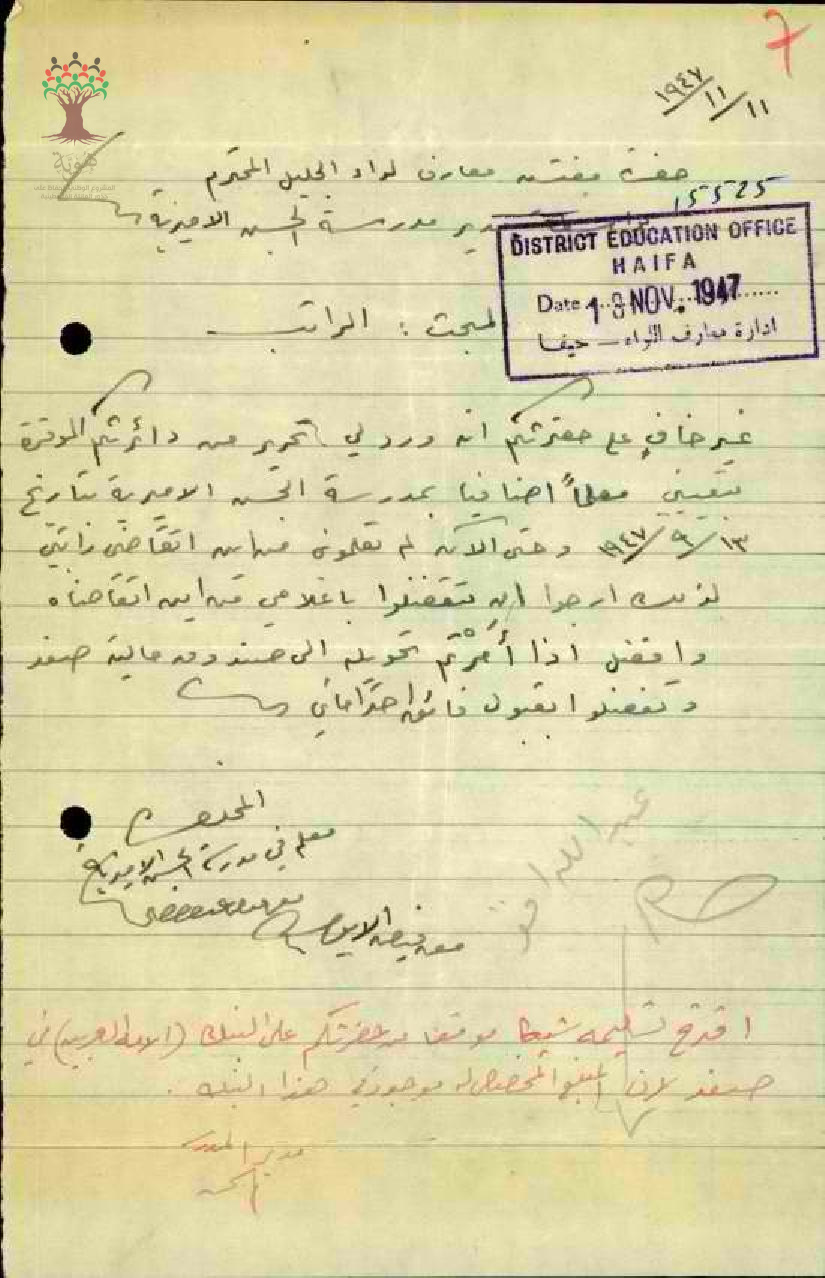 7
١١/١١/١٩٤٧
حضرة مفتش معارف لواء الجليل المحترم
15525
مدير مدرسة الحسن الاميرية
DISTRICT EDUCATION OFFICE
HAIFA
Date 18 NOV. 1947
ادارة معارف اللواء – حيفا
المبحث : الراتب
غير خافٍ على حضرتكم انه ورد لي تحرير من دائرتكم الموقرة
بتعييني معلماً اضافيا بمدرسة الحسن الاميرية بتاريخ
١٣/٩/١٩٤٧ وحتى الآن لم تعلموني من اين اتقاضى راتبي
لذلك ارجوا ان تتفضلوا باعلامي من اين اتقاضاه
وافضل اذا أمرتم تحويله الى صندوق مالية صفد
وتفضلوا بقبول فائق احتراماتي
المخلص
معلم في مدرسة الحسن الاميرية
عبد الله
اقترح تسليمه شيكا موقعا من حضرتكم على البنك (الامة العربية) في
صفد لان المبلغ المخصص له موجود في هذا البنك .
مدير المدرسة